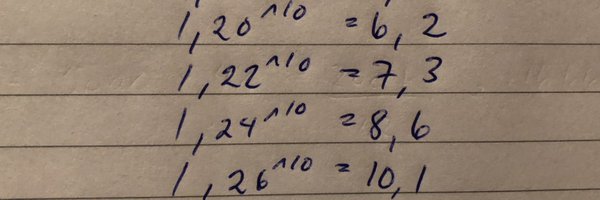 1,20^10 = 6,2
1,22^10 = 7,3
1,24^10 = 8,6
1,26^10 = 10,1